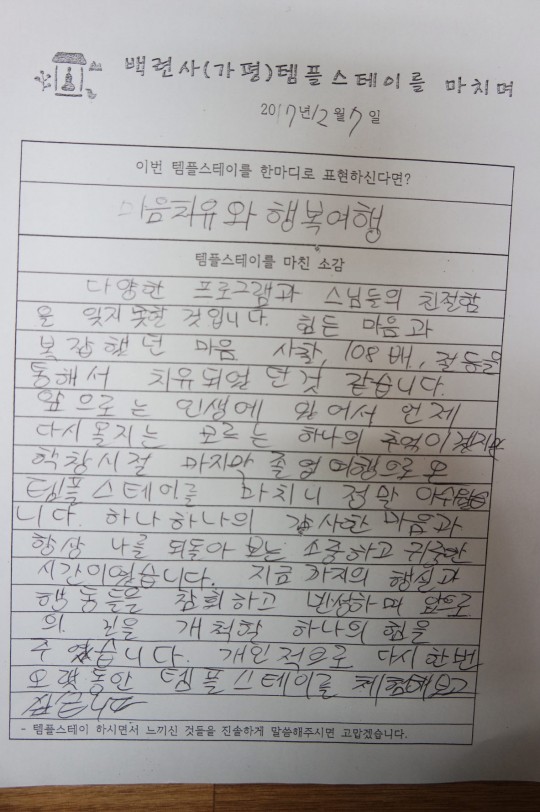 백련사(가평)템플스테이를 마치며
2017년 12월 7일
이번 템플스테이를 한마디로 표현하신다면?
마음치유와 행복여행
템플스테이를 마친 소감
다양한 프로그램과 스님들의 친절함
을 잊지 못할 것입니다. 힘든 마음과
복잡했던 마음 사찰, 108배,
통해서 치유되었던것 같습니다.
앞으로는 인생에 있어서 언제
다시올지는 모르는 하나의 추억이
학창시절 마지막 졸업여행으로 온
템플스테이를 마치니 정말
니다. 하나하나의 감사한 마음과
항상 나를 되돌아 보는 소중하고 귀중한
시간이었습니다. 지금 까지의 행실과
행동들을 참회하고 반성하며 앞으로
의 길을 개척할 하나의 힘을
주었습니다. 개인적으로 다시한번
오랫동안 템플스테이를 체험해보고
싶습니다
- 템플스테이 하시면서 느끼신 것들을 진솔하게 말씀해주시면 고맙겠습니다.